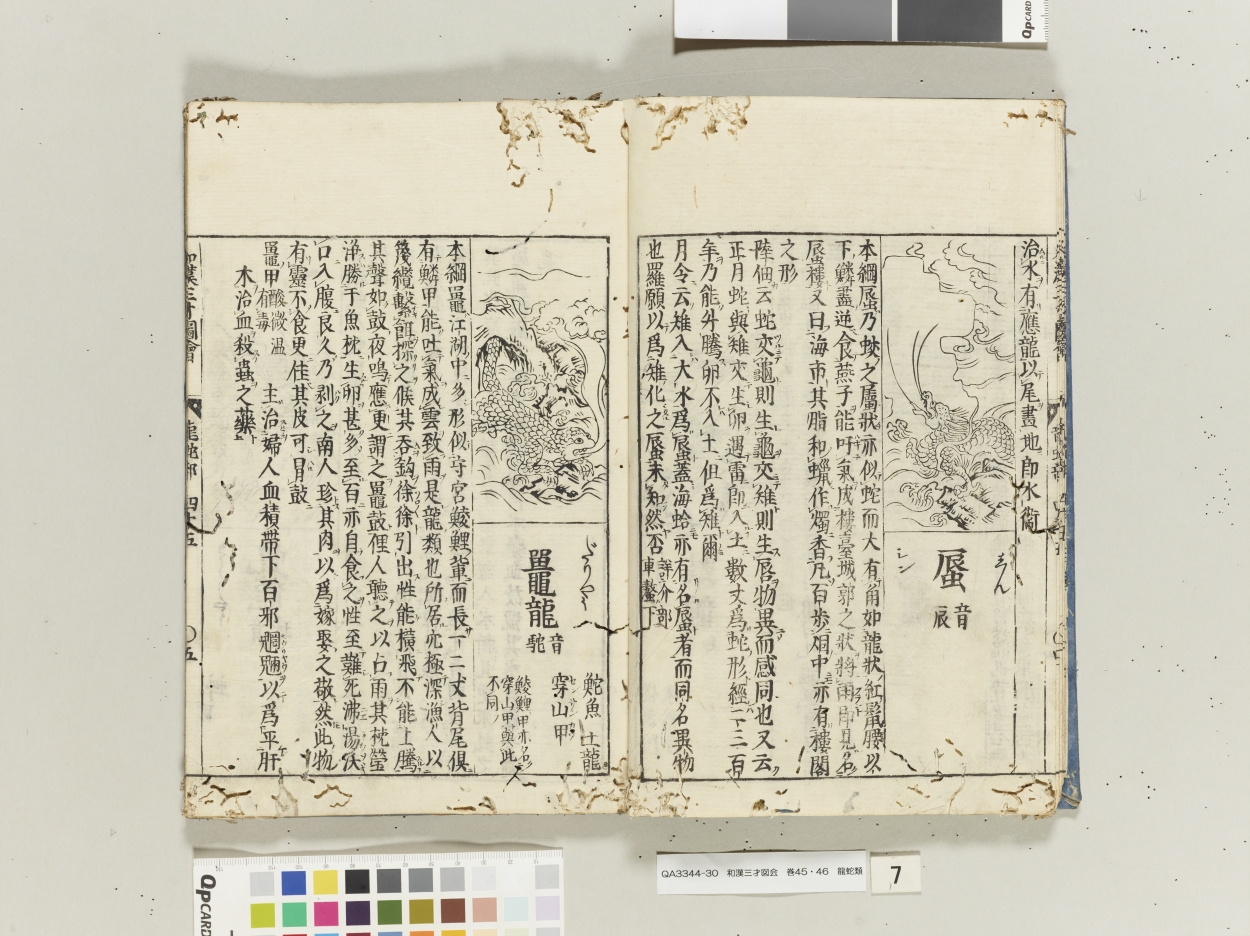 治水有應龍以尾畫地即水衝
蜃
音辰
しん
シン
本綱蜃乃蛟之屬狀亦似蛇而大有角如龍狀紅鬣腰以
下鱗盡逆食燕子能吁氣成樓臺城郭之狀將雨即見名
蜃樓又曰海市其脂和蠟作燭香凡百歩烟中亦有樓閣
之形
陸佃云蛇交龜則生龜交雉則生蜃物異而感同也又云
正月蛇與雉交生卵遇雷即入土數丈爲蛇形經二三百
年乃能升騰卵不入土但爲雉爾
月令云雉入大水爲蜃蓋海蛤亦有名蜃者而同名異物
也羅願以爲雉化之蜃未知然否
詳介部
車螯下
鼉龍
音駝
鮀魚 土龍
穿山甲
鯪鯉甲亦名
穿山甲與此
不同
本綱鼉江湖中多形似守宮鯪鯉輩而長一二丈背尾俱
有鱗甲能吐氣成雲致雨是龍類也所居穴極深漁人以
篾纜繫餌探之候其呑鈎徐徐引出性能橫飛不能上騰
其聲如鼓夜鳴應更謂之鼉鼓俚人聽之以占雨其枕瑩
淨勝于魚枕生卵甚多至百亦自食之性至難死沸湯沃
口入腹良久乃剥之南人珍其肉以爲嫁娶之敬然此物
有靈不食更佳其皮可冒鼓
鼉甲
酸微温
有毒
主治婦人血積帶下百邪魍魎以爲平肝
木治血殺蟲之藥
和漢三才圖會
龍蛇部 四十五
○五
QA3344-30 和漢三才図会 巻45・46 龍蛇類
7
QPCARD
QPCARD